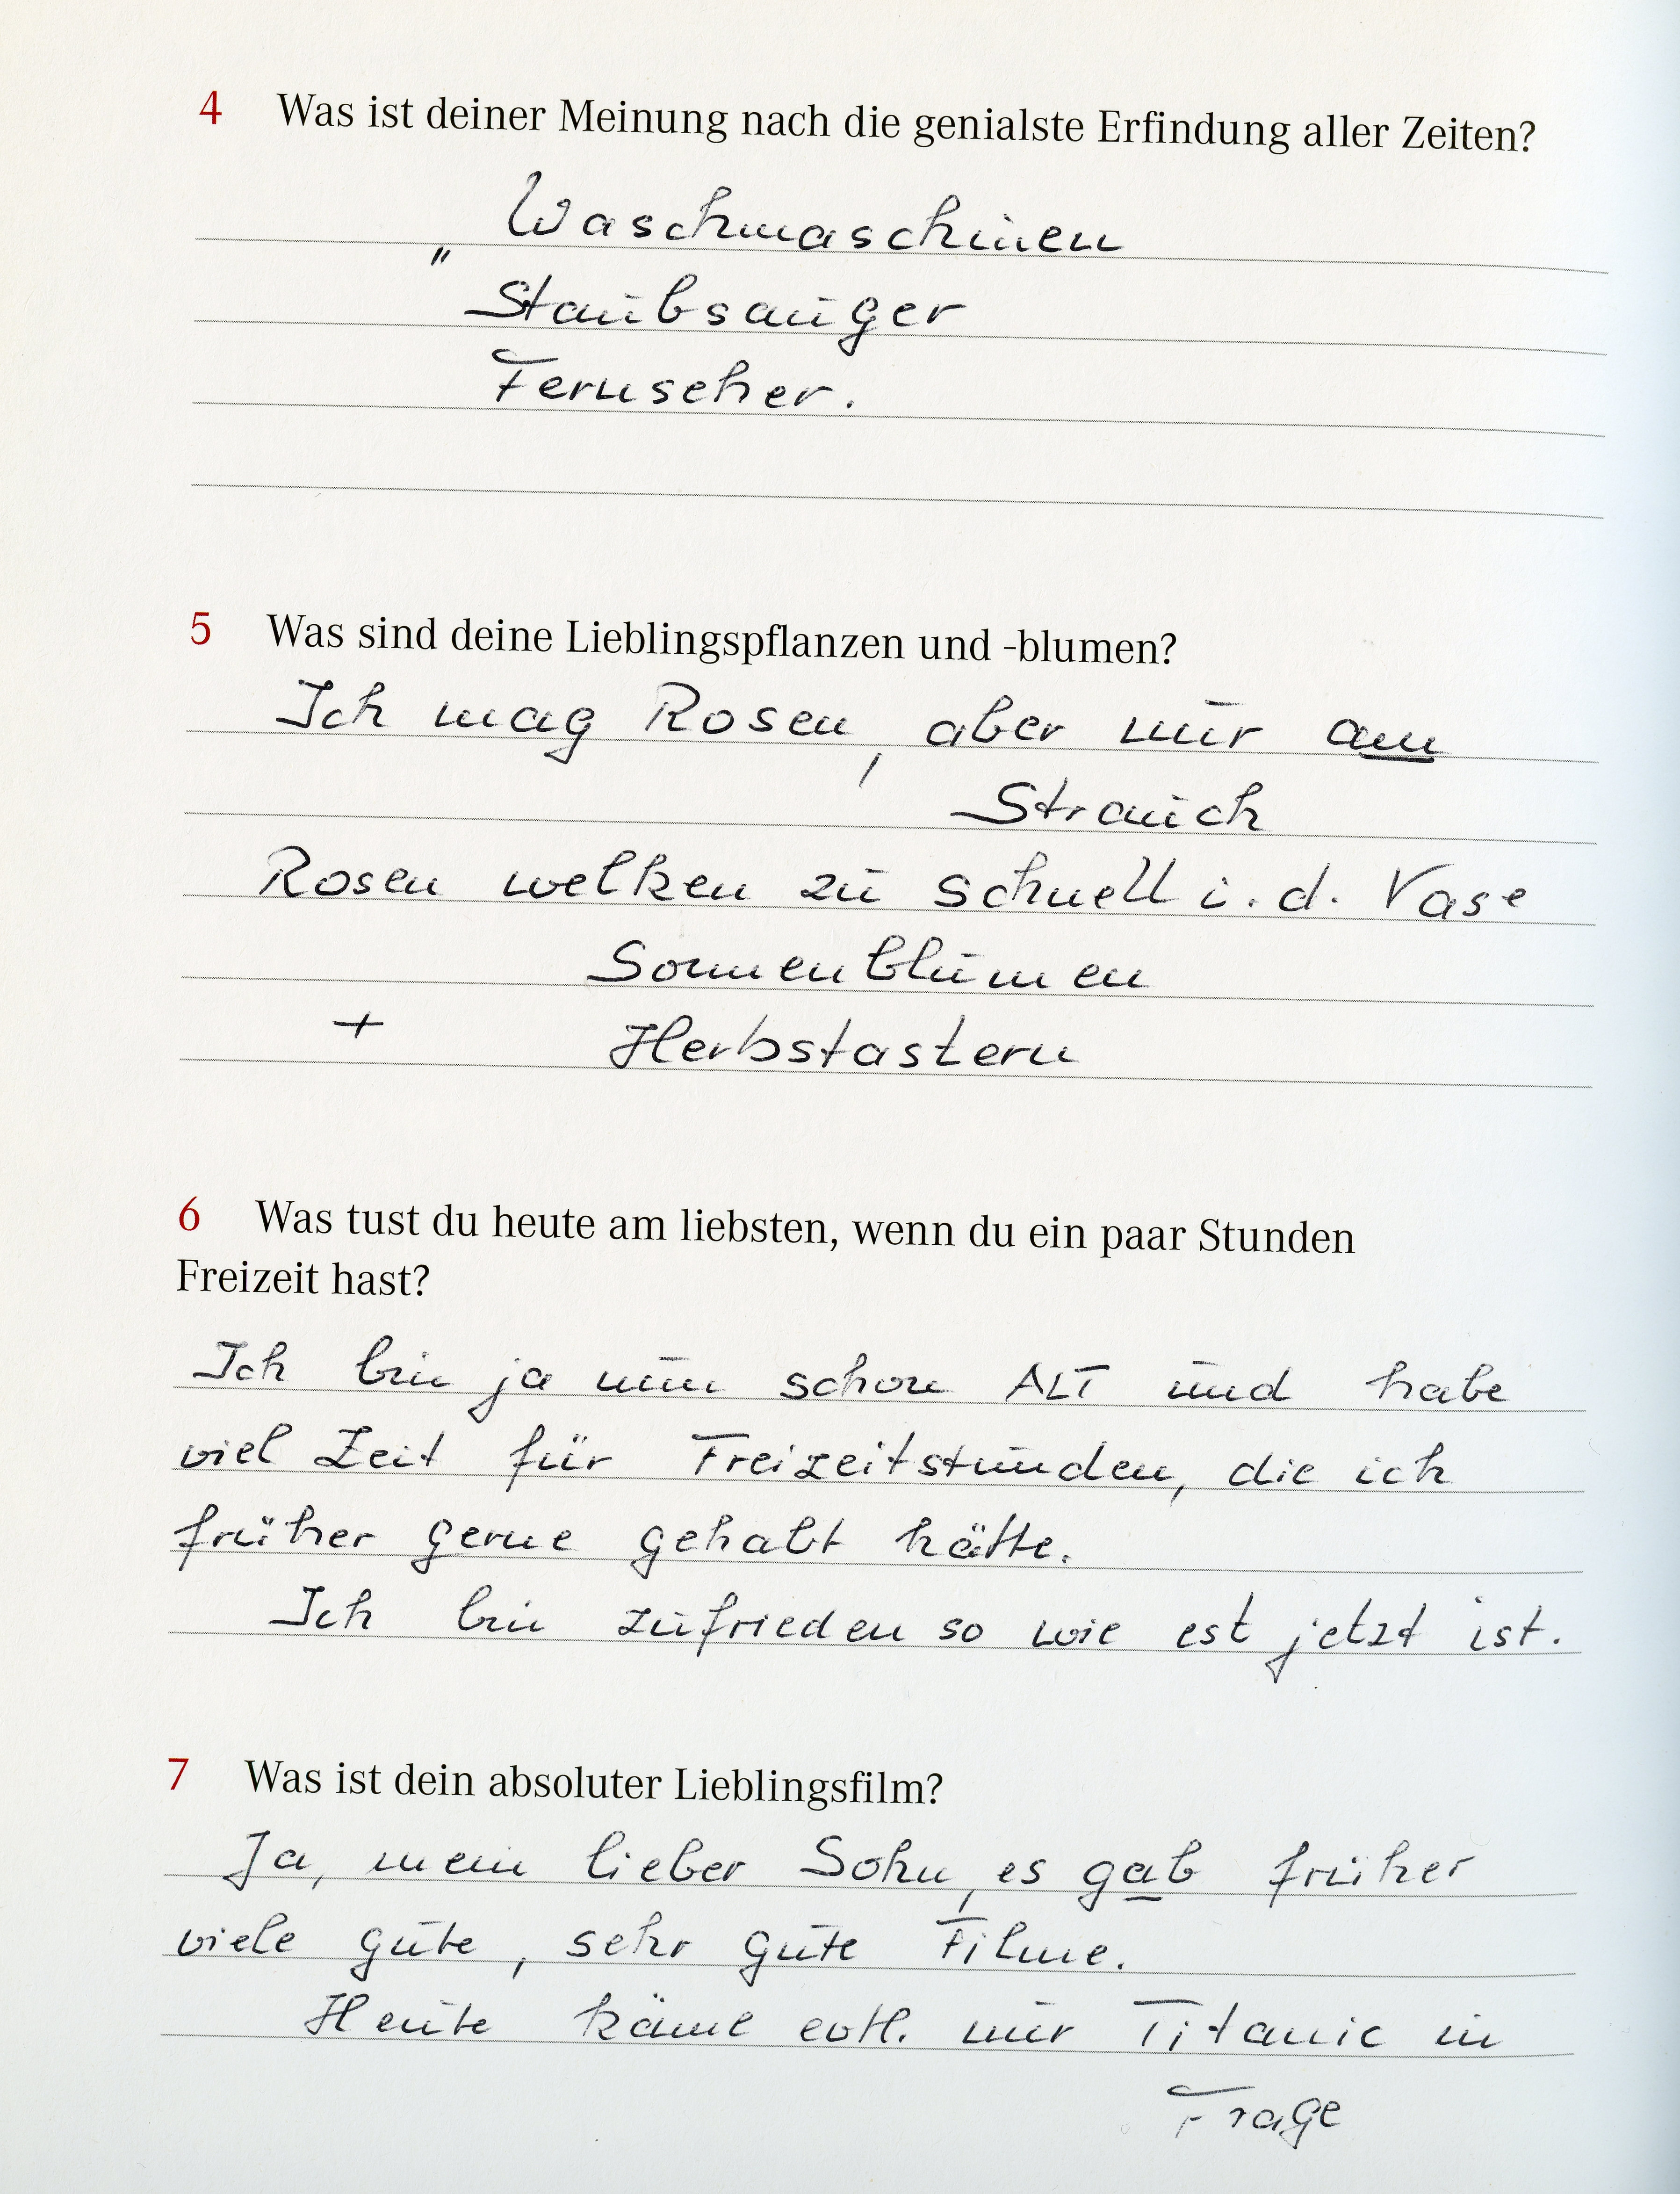 4 Was ist deiner Meinung nach die genialste Erfindung aller Zeiten?
Waschmaschinen
"
Staubsauger
Fernseher.
5 Was sind deine Lieblingspflanzen und -blumen?
Ich mag Rosen, aber nur am
Strauch
Rosen welken zu schnell i. d. Vase
Sonnenblumen
+ Herbstastern
6 Was tust du heute am liebsten, wenn du ein paar Stunden
Freizeit hast?
Ich bin ja nun schon ALT und habe
viel Zeit für Freizeitstunden, die ich
früher gerne gehabt hätte.
Ich bin zufrieden so wie est jetzt ist.
7 Was ist dein absoluter Lieblingsfilm?
Ja, mein lieber Sohn, es gab früher
viele gute, sehr gute Filme.
Heute käme evtl. nur Titanic in
Frage